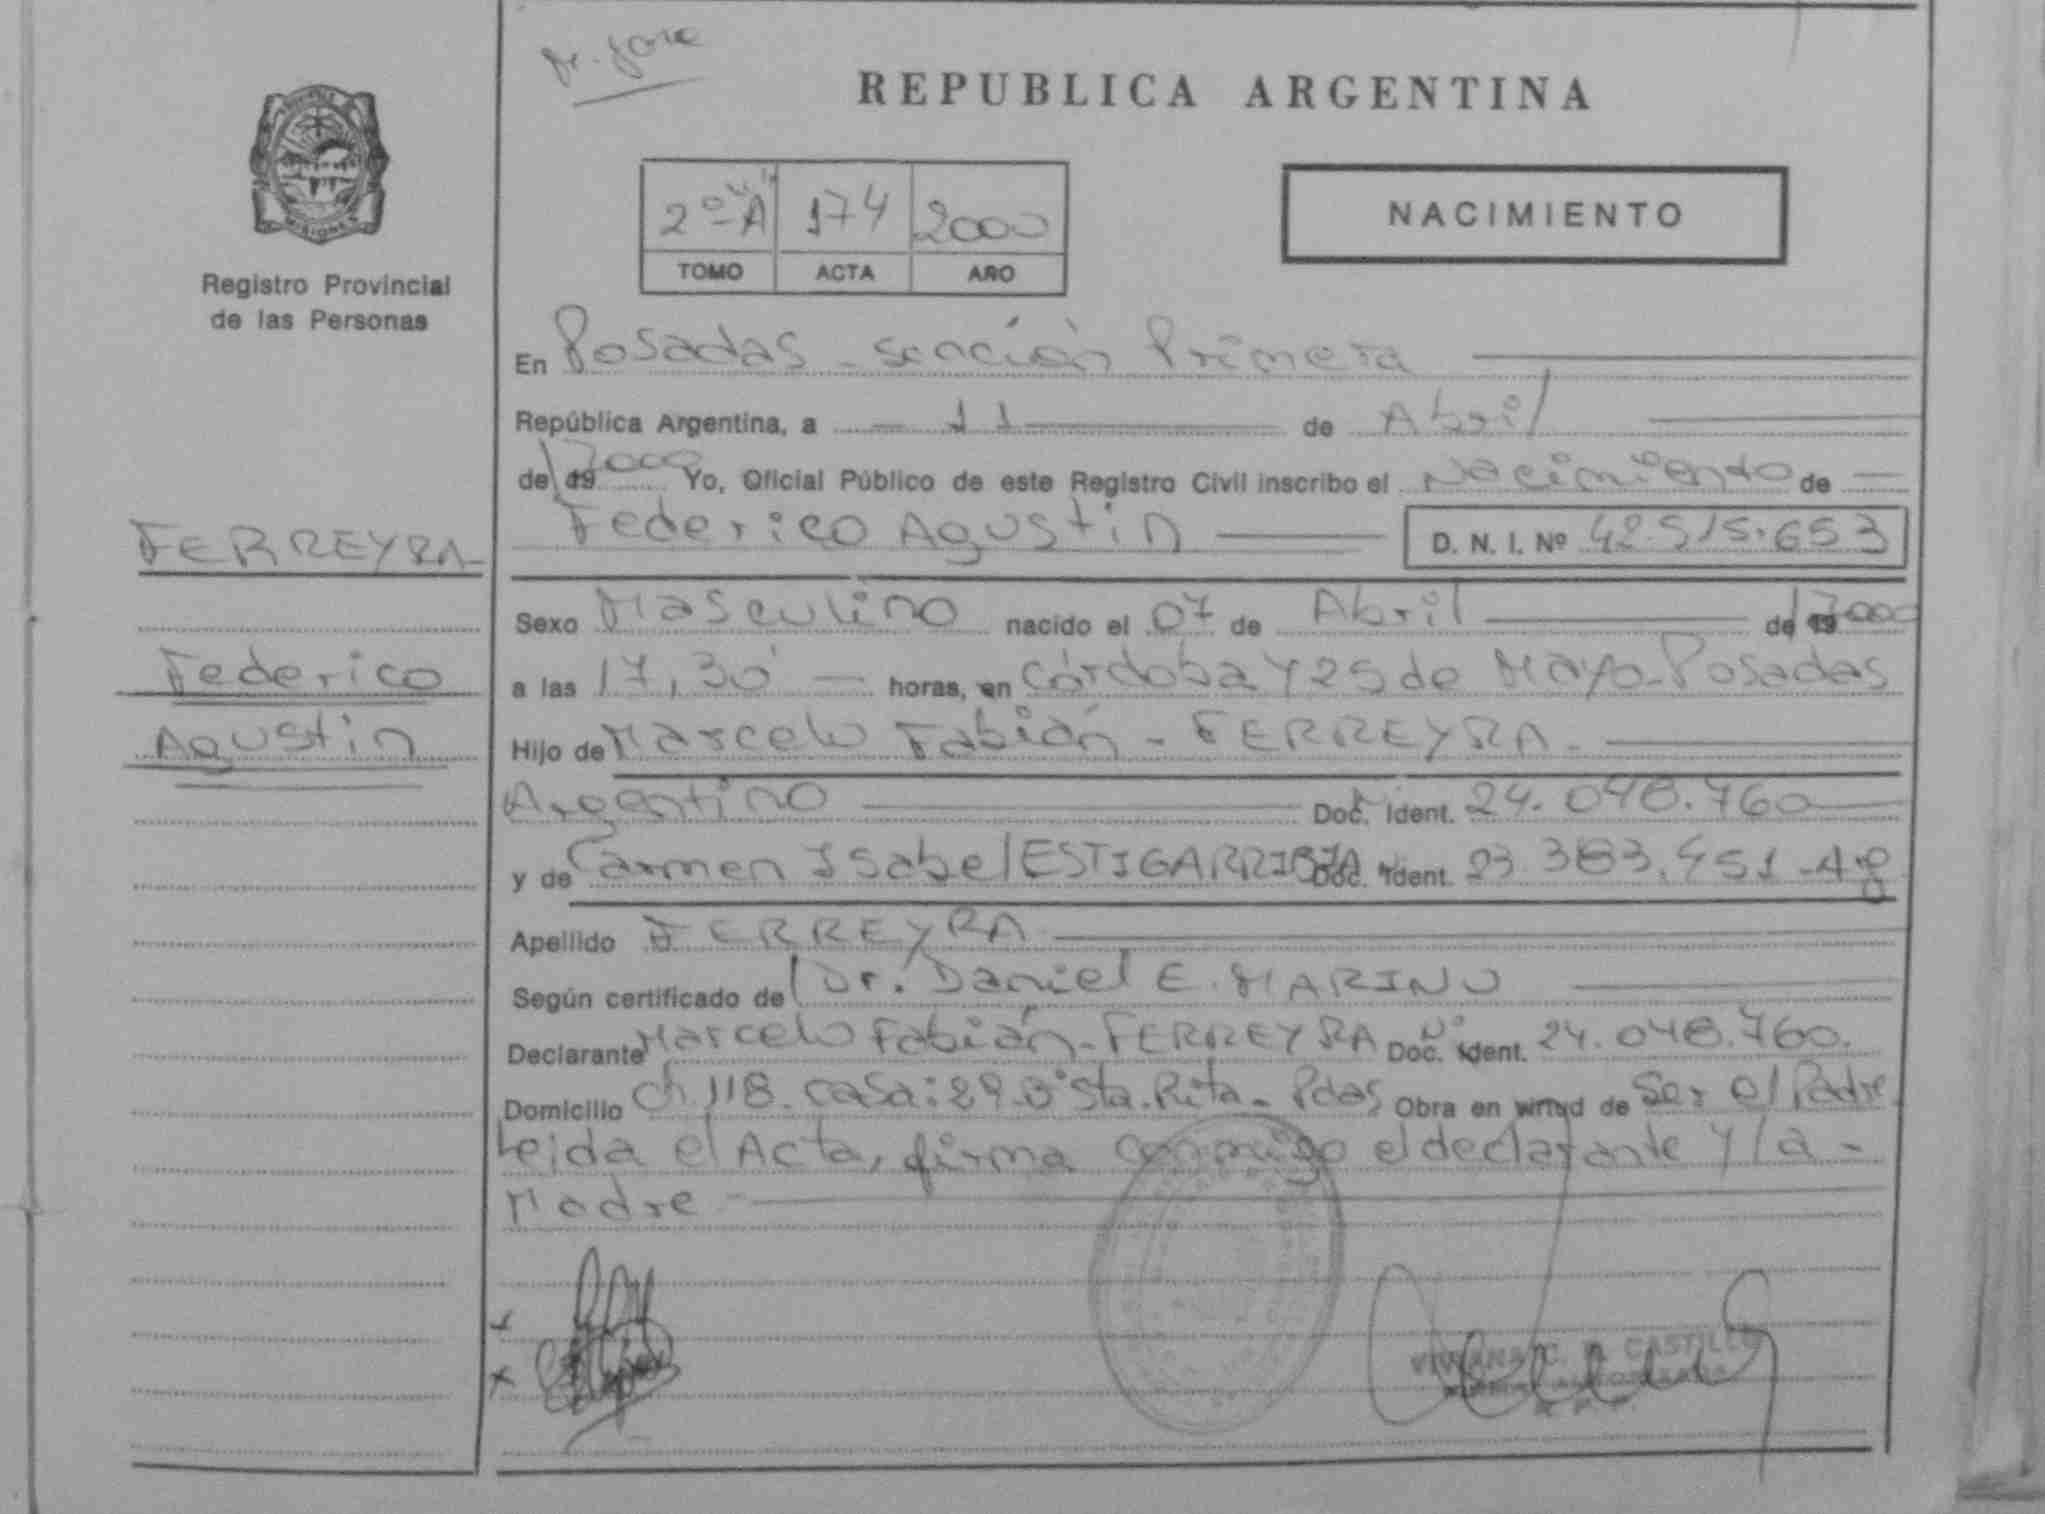 REPUBLICA ARGENTINA
2º A 174 2000
TOMO ACTA AÑO
NACIMIENTO
Registro Provincial
de las Personas
En Posadas - sección Primera
República Argentina, a 11 de Abril
de 19 2000 Yo, Oficial Público de este Registro Civil inscribo el Nacimiento de
Federico Agustin D. N. I. Nº 42.515.653
FERREYRA
Federico
Agustin
Sexo Masculino nacido el 07 de Abril de 19 2000
a las 17,30 horas, en Córdoba y 25 de Mayo - Posadas
Hijo de Marcelo Fabián - FERREYRA -
Argentino Doc. Ident. 24.048.760
y de Carmen Isabel ESTIGARRIBIA Doc. Ident. 23.383.451
Apellido FERREYRA
Según certificado de Dr. Daniel E. MARINO
Declarante Marcelo Fabián - FERREYRA Doc. Ident. 24.048.760.
Domicilio ch. 118. casa: 29. Bº Sta. Rita - Pdas Obra en virtud de Ser el Padre
Leida el Acta, firma conmigo el declarante y la -
Madre -